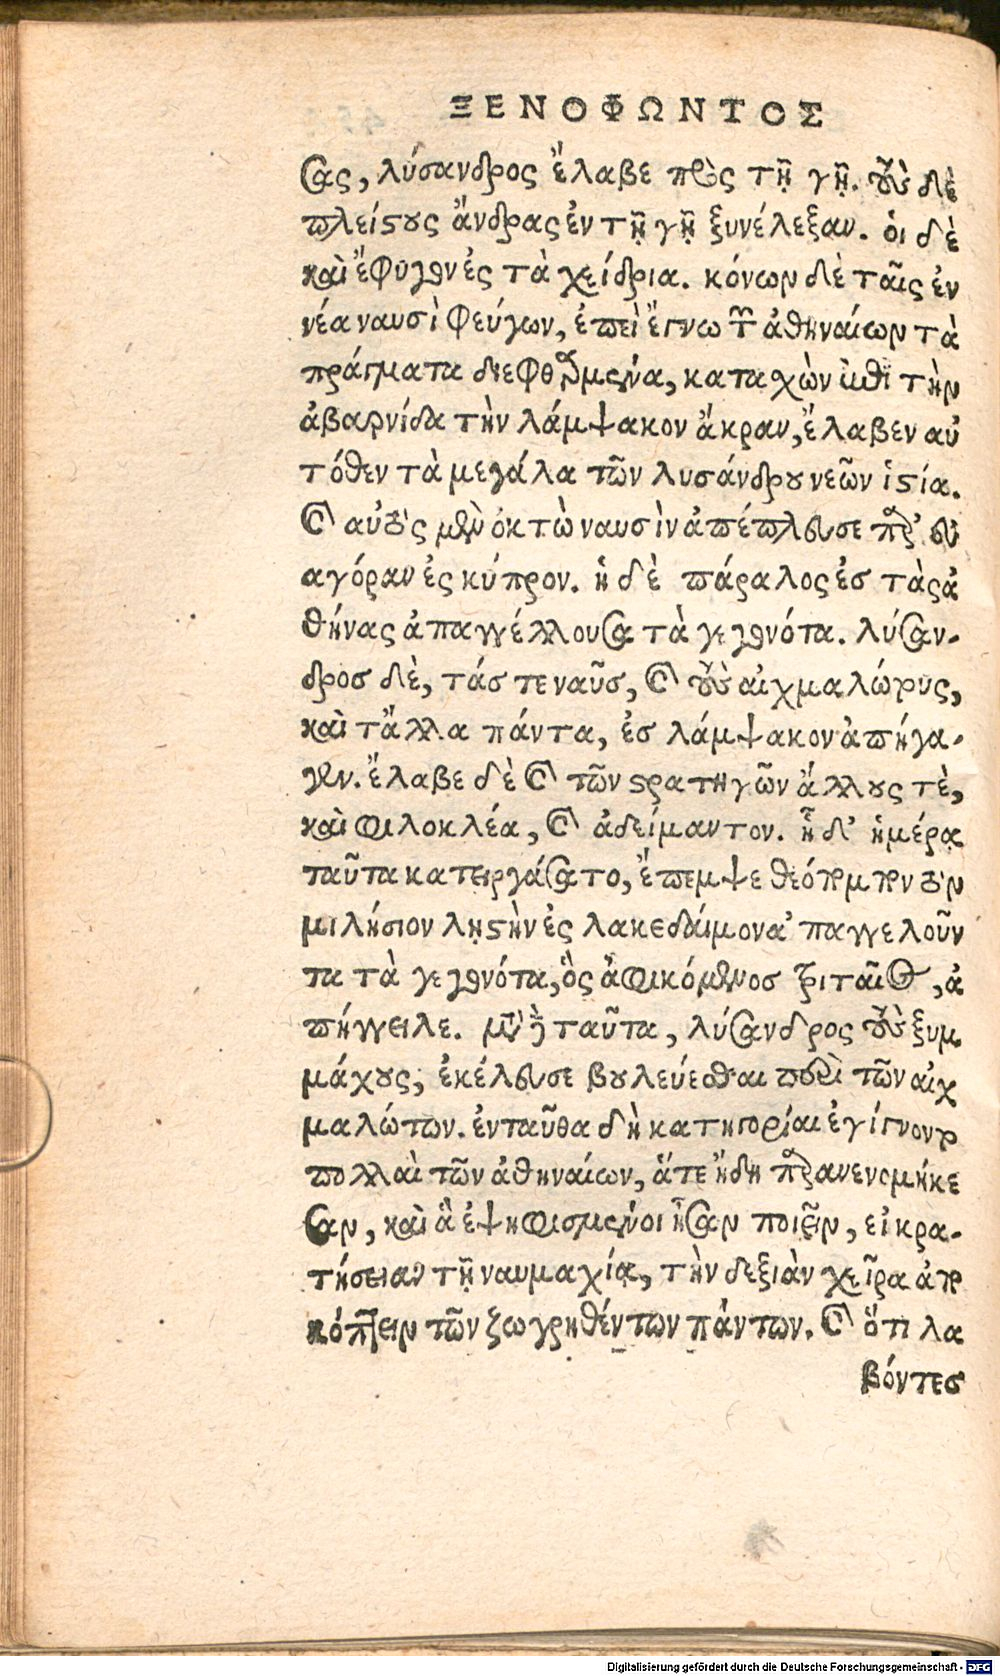 ΞΕΝΟΦΩΝΤΟΣ
σας, λύσανδρος ἔλαβε πρὸς τῇ γῇ. τοὺς δὲ
πλείστους ἄνδρας ἐν τῇ γῇ ξυνέλεξαν. οἱ δὲ
καὶ ἔφυγον ἐς τὰ χείδρια. κόνων δὲ ταῖς ἐν
νέα ναυσὶ φεύγων, ἐπεὶ ἔγνω τῶν ἀθηναίων τὰ
πράγματα διεφθαρμένα, κατασχὼν ἐπὶ τὴν
ἀβαρνίδα τὴν λάμψακον ἄκραν, ἔλαβεν αὐ
τόθεν τὰ μεγάλα τῶν λυσάνδρου νεῶν ἱστία.
καὶ αὐτὸς μὲν ὀκτὼ ναυσὶν ἀπέπλευσε παρ' εὐ
αγόραν ἐς κύπρον. ἡ δὲ πάραλος ἐσ τὰς ἀ
θήνας ἀπαγγέλλουσα τὰ γεγονότα. λύσαν-
δροσ δὲ, τάσ τε ναῦσ, καὶ τοὺς αἰχμαλώτους,
καὶ τἄλλα πάντα, ἐσ λάμψακον ἀπήγα-
γεν. ἔλαβε δὲ καὶ τῶν στρατηγῶν ἄλλους τὲ,
καὶ φιλοκλέα, καὶ ἀδείμαντον. ᾗ δ' ἡμέρᾳ
ταῦτα κατειργάσατο, ἔπεμψε θεόπομπον τὸν
μιλήσιον λῃστὴν ἐς λακεδαίμονα ἀπαγγελοῦν
τα τὰ γεγονότα, ὃς ἀφικόμενοσ τριταῖος, ἀ
πήγγειλε. μετὰ δὲ ταῦτα, λύσανδρος τοὺς ξυμ
μάχους, ἐκέλευσε βουλεύεσθαι περὶ τῶν αἰχ
μαλώτων. ἐνταῦθα δὴ κατηγορίαι ἐγίγνοντο
πολλαὶ τῶν ἀθηναίων, ἅτε ἤδη παρανενομήκε
σαν, καὶ ἃ ἐψηφισμένοι ἦσαν ποιεῖν, εἰ κρα-
τήσειαν τῇ ναυμαχίᾳ, τὴν δεξιὰν χεῖρα ἀπο
κόπτειν τῶν ζωγρηθέντων πάντων. καὶ ὅτι λα
βόντεσ
Digitalisierung gefördert durch die Deutsche Forschungsgemeinschaft - DFG